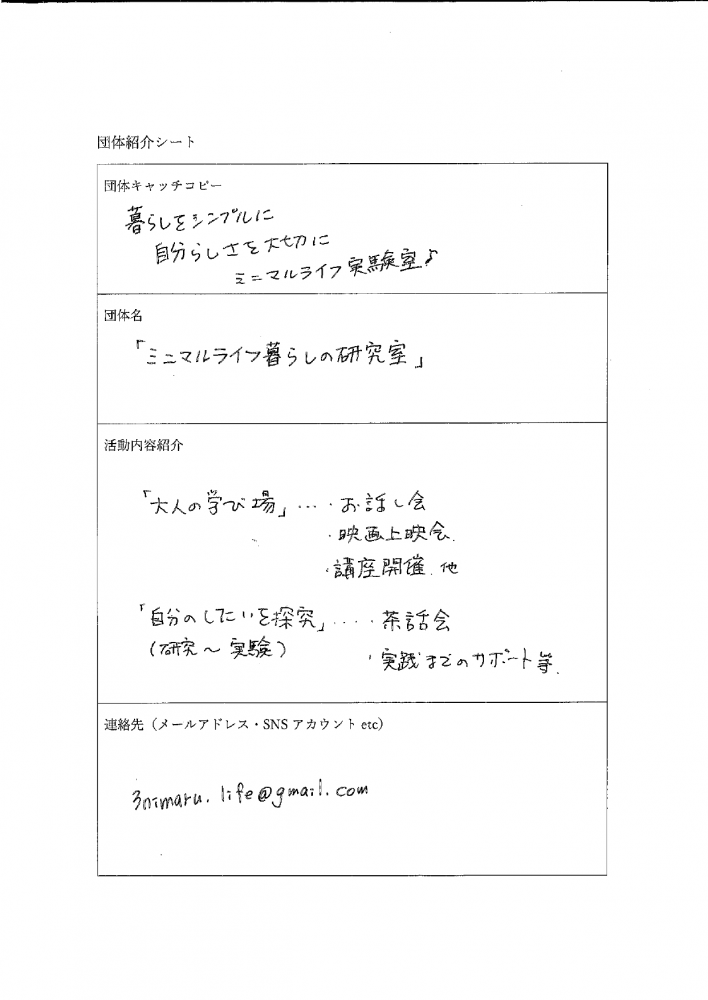 団体紹介シート
団体キャッチコピー
暮らしをシンプルに
自分らしさを大切に
ミニマルライフ実験室♪
団体名
「ミニマルライフ暮らしの研究室」
活動内容紹介
「大人の学び場」‥‥・お話し会
・映画上映会.
・講座開催.他
「自分のしたいを探究」‥‥・茶話会
(研究～実験)
・実践までのサポート等.
連絡先（メールアドレス・SNSアカウント etc）
3nimaru.life@gmail.com